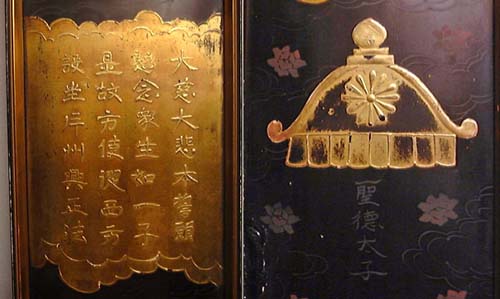 大慈大悲本誓願
愍念衆生如一子
是故方便從西方
誕生片州興正法
聖德太子